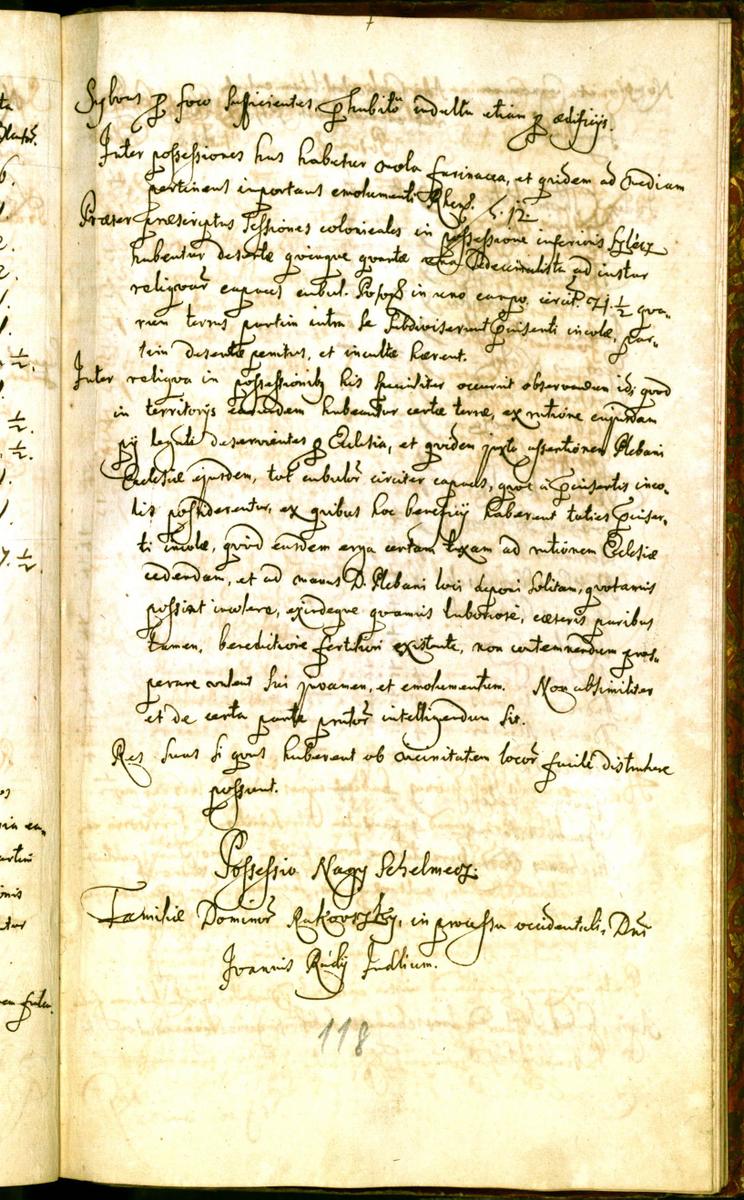 Sylvas p foco sufficientes, p habitô indultu etiam p ædificijs.
Inter possessiones has habetur mola farinacea, et quidem ad Mediam
pertinens importans emolumenti Rhens. f. 12
Præter præscriptas Sessiones colonicales in possessione inferioris
habentur desertæ quinque quartæ Sedecimalistæ ad instar
reliquar capaces cubul. Poson in uno campo circit. 71. 1/2 qua-
rum terras partim intra se subdiviserunt incolæ, par-
tim desertæ penitus, et incultæ hærent.
Inter reliqua in possessionib his specialiter occurrit observandum id; quod
in territorijs earundem habeantur certæ terræ, ex ratione cujusdam
pij legati deservientes p Ecclesia, et quidem juxta assertionem Plebani
Ecclesiæ ejusdem, tot cubulor circiter capaces, quot à inco-
lis possiderentur, ex quibus hoc beneficij haberent toties
ti incolæ, quod easdem erga certam taxam ad rationem Ecclesiæ
cedendam, et ad manus D. Plebani loci deponi solitam, quotannis
possint incolere, exindeque quamvis laboriosè, cæteris paribus
tamen, benedictione fertiliori existente, non contemnendum pros-
perare valeant sui juvamen, et emolumentum. Non absimiliter
et de certa parte prator intelligendum sit.
Res suas si quas haberent ob vicinitatem locor facilè distrahere
possunt.
Possessio Nagy Selmecz.
Familiæ Dominor Rakovszky, in processu occidentali, Dni
Joannis Rudij Judlium.
118